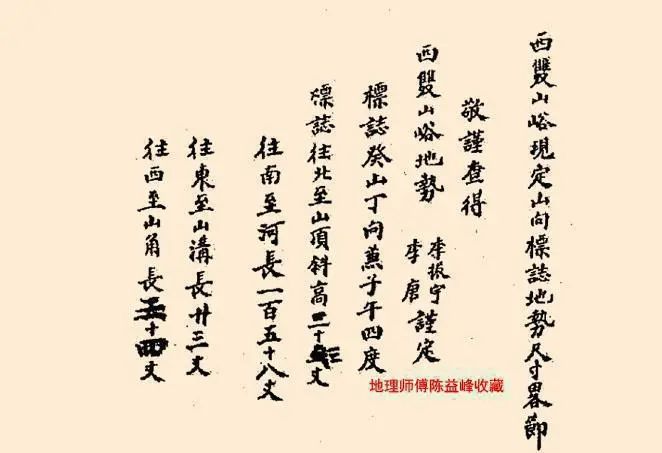 西雙山峪現定山向標誌地勢尺寸畧節
敬謹查得
西雙山峪地勢
李振宇
李唐
謹定
標誌癸山丁向兼子午四度
標誌往北至山頂斜高二十丈
往南至河長一百五十八丈
往東至山溝長廿三丈
往西至山角長十丈
地理师傅陈益峰收藏